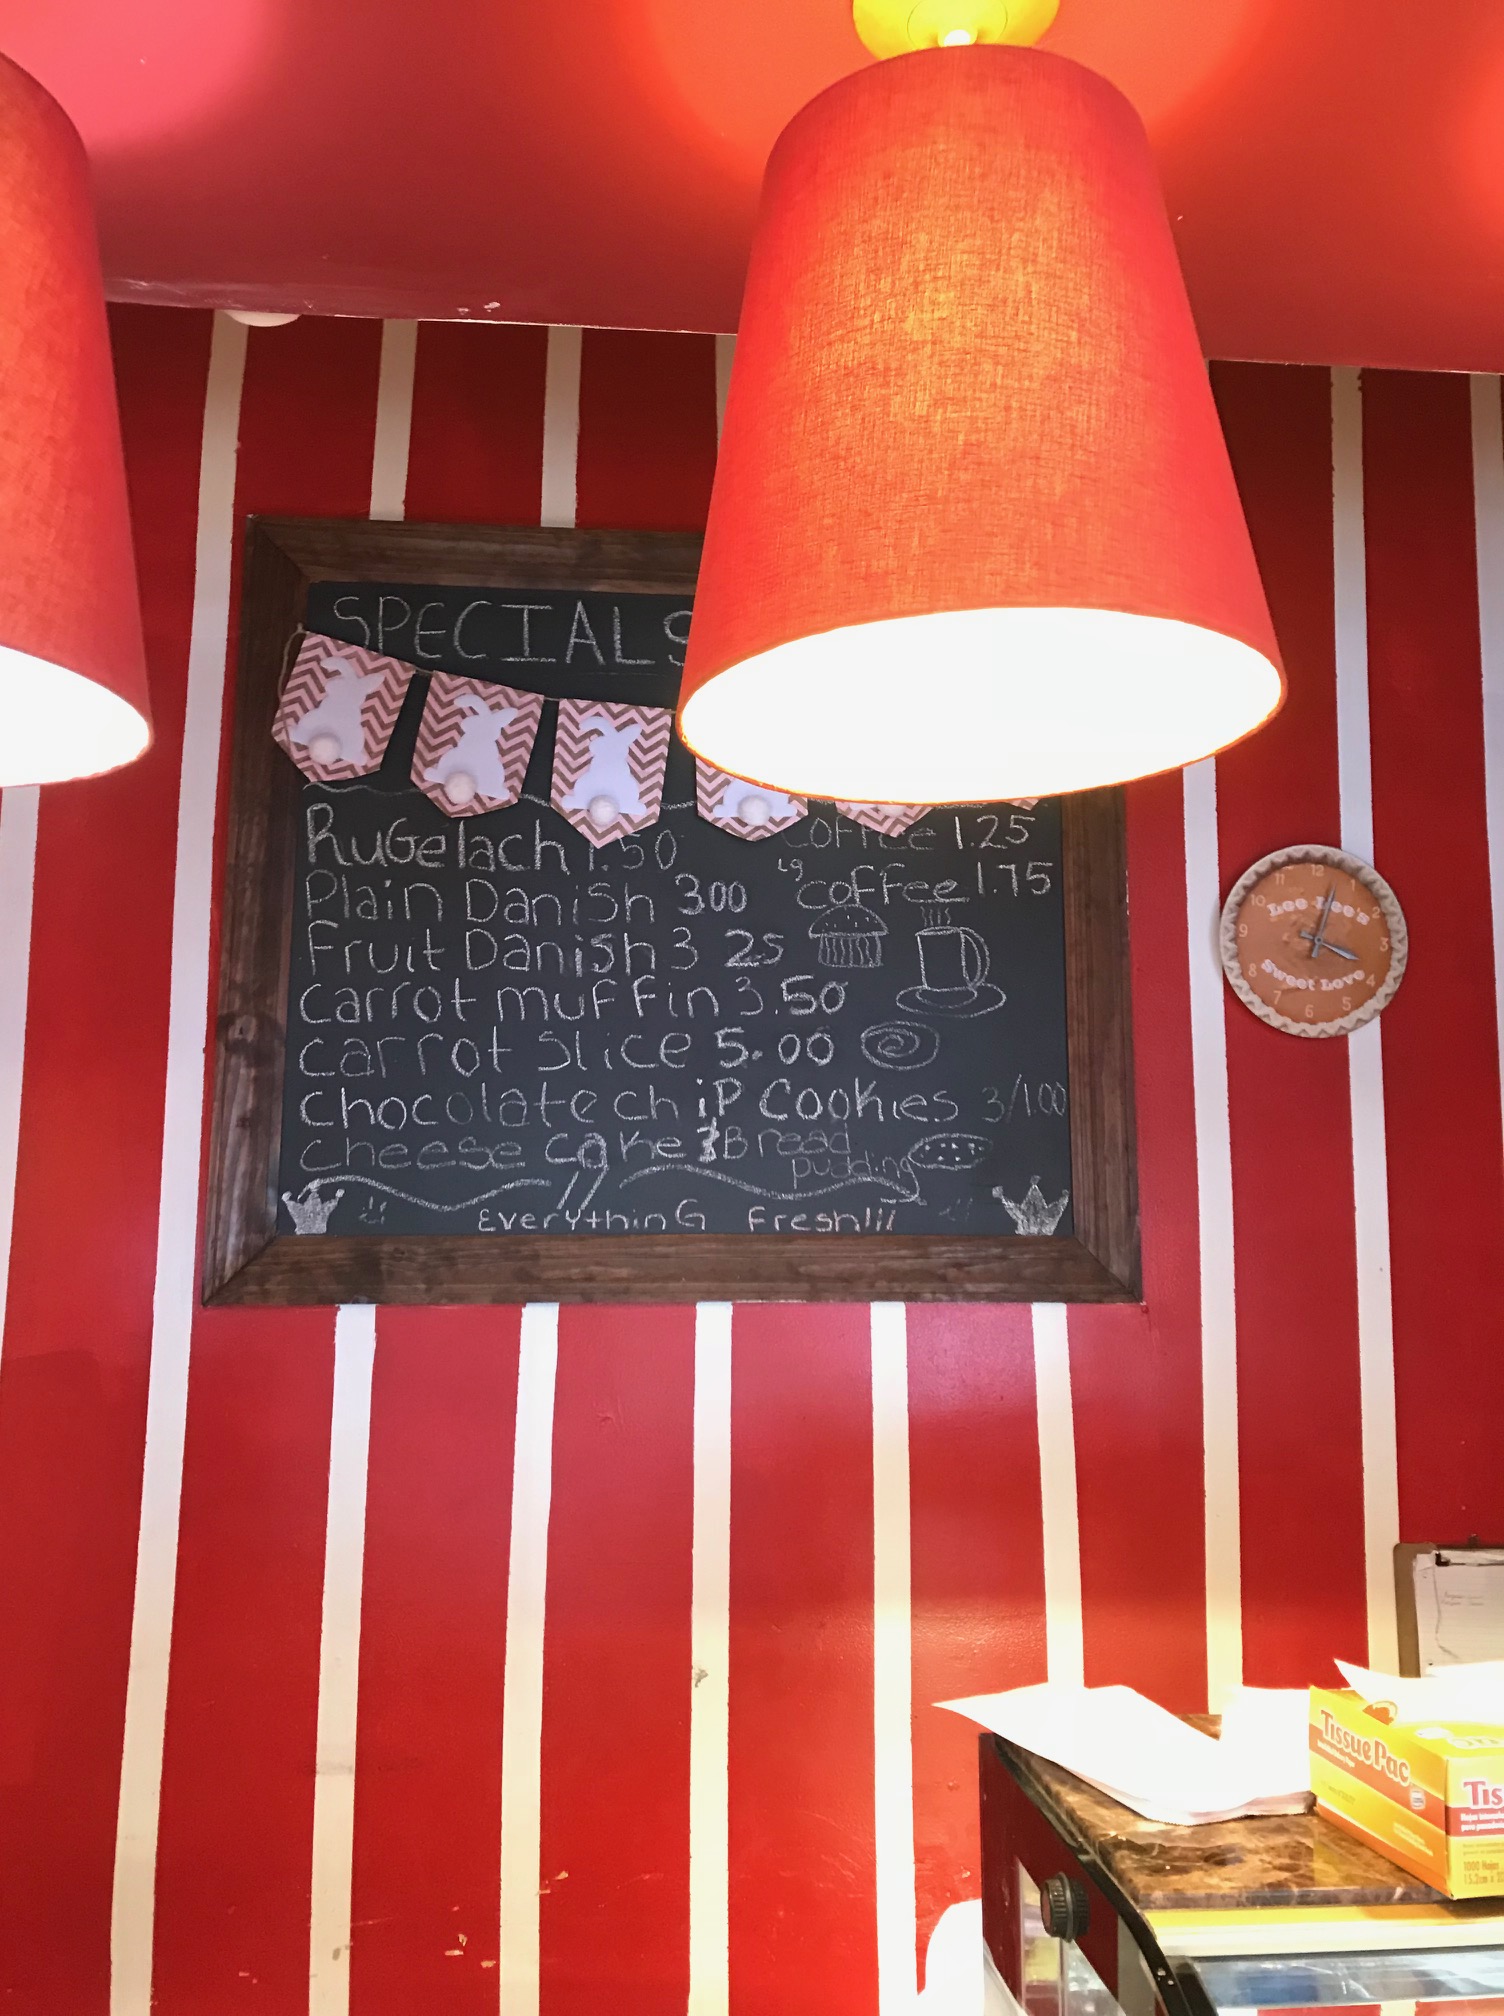 SPECIALS
RuGelach 1.50
Plain Danish 300
Fruit Danish 3 25
carrot muffin 3.50
carrot slice 5.00
chocolate chip Cookies 3/1.00
cheese cake & Bread
pudding
EverythinG Fresh!!!
coffee 1.25
Lg coffee 1.75
11 12 1
10 2
9 3
8 4
7 6 5
Lee Lee's
Sweet Love
Tissue Pac
Tis
1000 Hojas